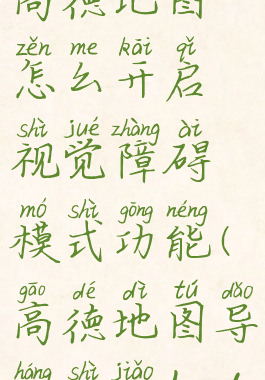 高德地图
zěn me kāi qǐ
怎么开启
shì jué zhàng ài
视觉障碍
mó shì gōng néng
模式功能(
gāo dé dì tú dǎo
高德地图导
háng shì jiǎo